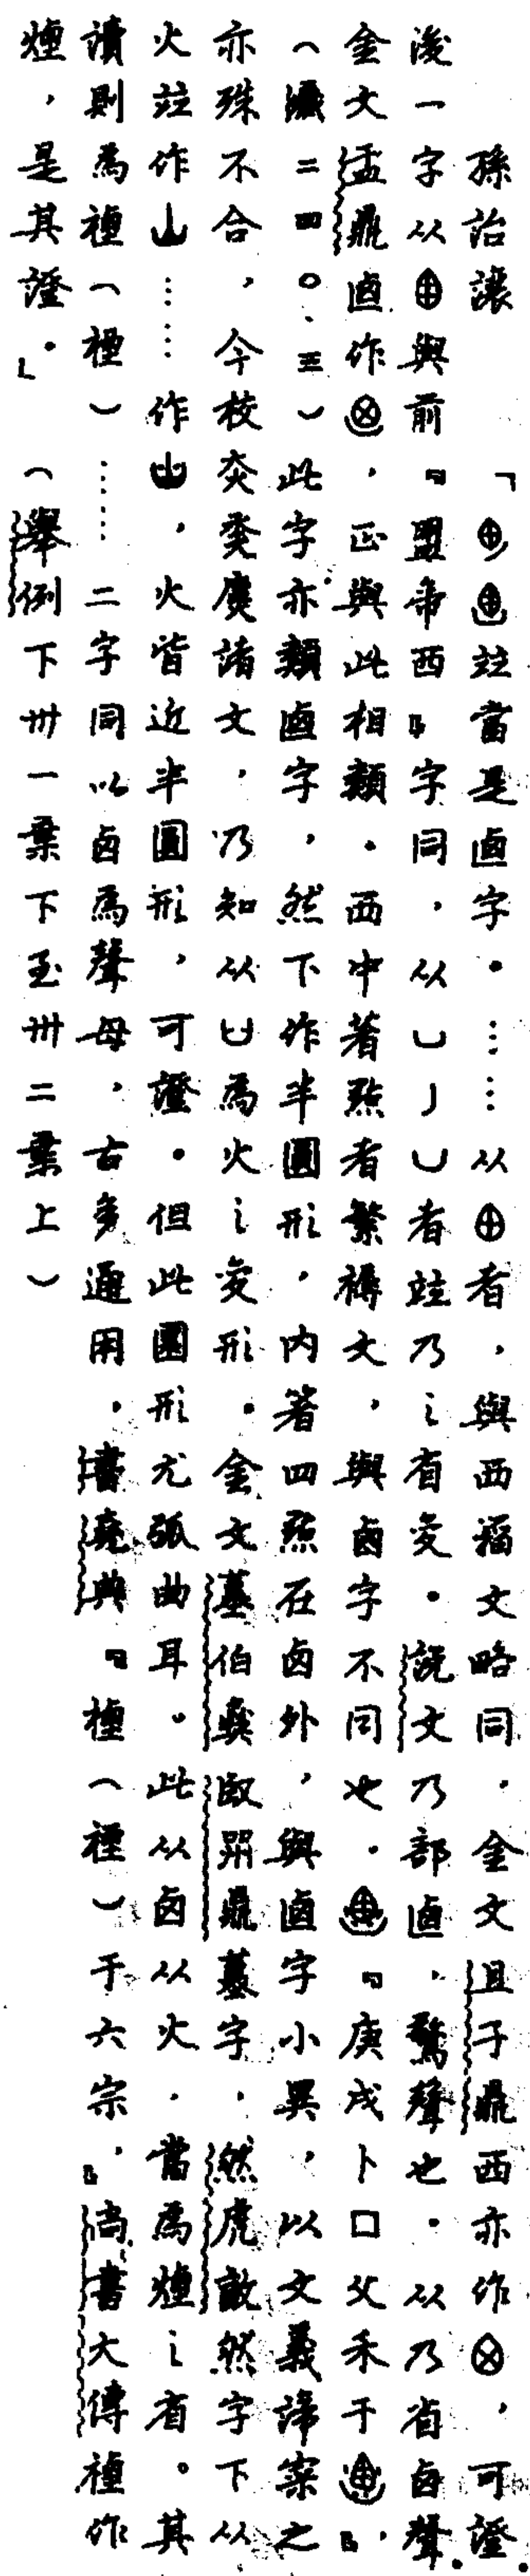 孫詒讓 「𠧪𠧪竝當是卥字。……从⊕者,與西籀文略同,金文且子鼎西亦作⊗,可證
後一字从⊕與前『盟帝西』字同,从乚丿乚者竝乃之省變。說文乃部卥,驚聲也。从乃省卥聲。
金文盂鼎卥作,正與此相類。西中著點者繁褥文,與卥字不同也。『庚戌卜囗父禾于』,
(藏二四〇.三)此字亦類卥字,然下作半圓形,內著四點在卥外,與卥字小異,以文義諦案之
亦殊不合,今校䆴諸文,乃知从凵為火之變形。金文伯彝鼎字,然虎敲然字下从
火竝作……作,火皆近半圓形,可證。但此圜形尤弧曲耳。此从卥从火,當為煙之省。其
讀則為禋(禋)……二字同以卥為聲母,古多通用。書堯典『禋(禋)于六宗』,尚書大傳禋作
煙,是其證。」(舉例下卅一葉下至卅二葉上)